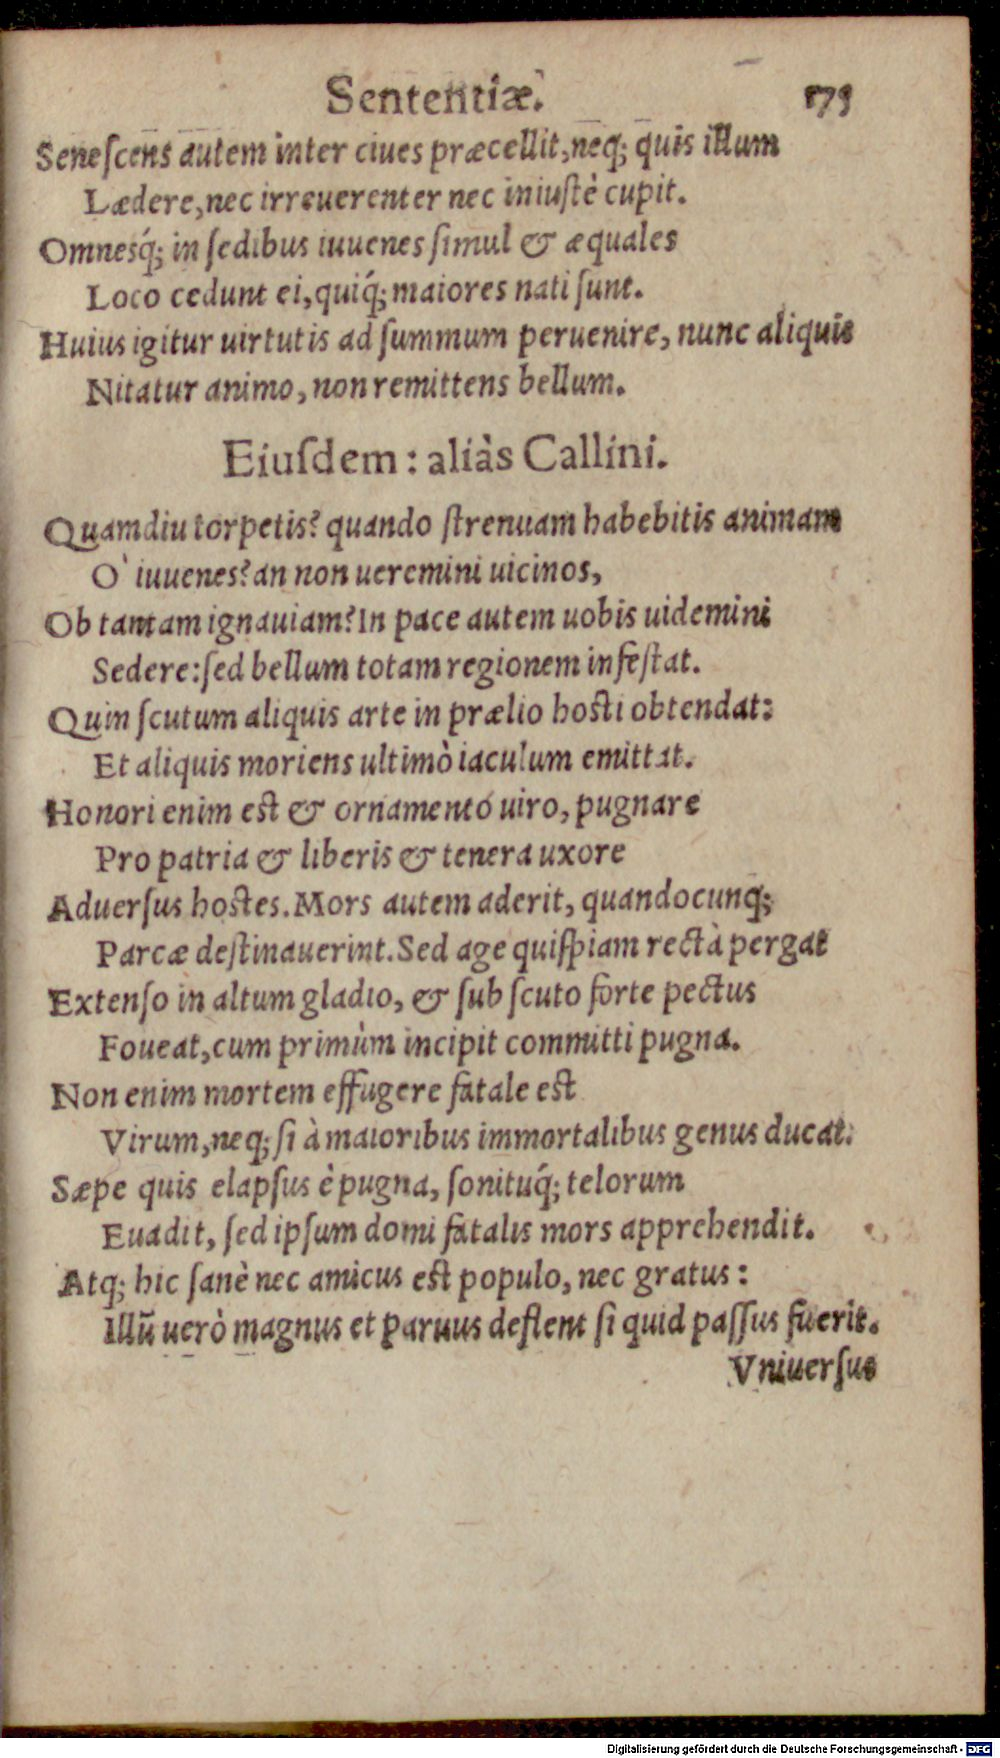 Sententiæ. 175
Seneſcens autem inter ciues præcellit, neq; quis illum
Lædere, nec irreuerenter nec iniuſtè cupit.
Omnesq́; in ſedibus iuuenes ſimul & æquales
Loco cedunt ei, quiq́; maiores nati ſunt.
Huius igitur uirtutis ad ſummum peruenire, nunc aliquis
Nitatur animo, non remittens bellum.
Eiuſdem: aliàs Callini.
Quamdiu torpetis? quando ſtrenuam habebitis animam
O' iuuenes? an non ueremini uicinos,
Ob tantam ignauiam? In pace autem uobis uidemini
Sedere: ſed bellum totam regionem infeſtat.
Quin ſcutum aliquis arte in prælio hosti obtendat:
Et aliquis moriens ultimò iaculum emittat.
Honori enim est & ornamento uiro, pugnare
Pro patria & liberis & tenera uxore
Aduerſus hostes. Mors autem aderit, quandocunq;
Parcæ deſtinauerint. Sed age quiſpiam rectà pergat
Extenſo in altum gladio, & ſub ſcuto forte pectus
Foueat, cum primùm incipit committi pugna.
Non enim mortem effugere fatale est
Virum, neq; ſi à maioribus immortalibus genus ducat.
Sæpe quis elapſus è pugna, ſonituq́; telorum
Euadit, ſed ipſum domi fatalis mors apprehendit.
Atq; hic ſanè nec amicus est populo, nec gratus:
Illũ uerò magnus et paruus deflent ſi quid paſſus fuerit.
Vniuerſus
Digitalisierung gefördert durch die Deutsche Forschungsgemeinschaft - DFG